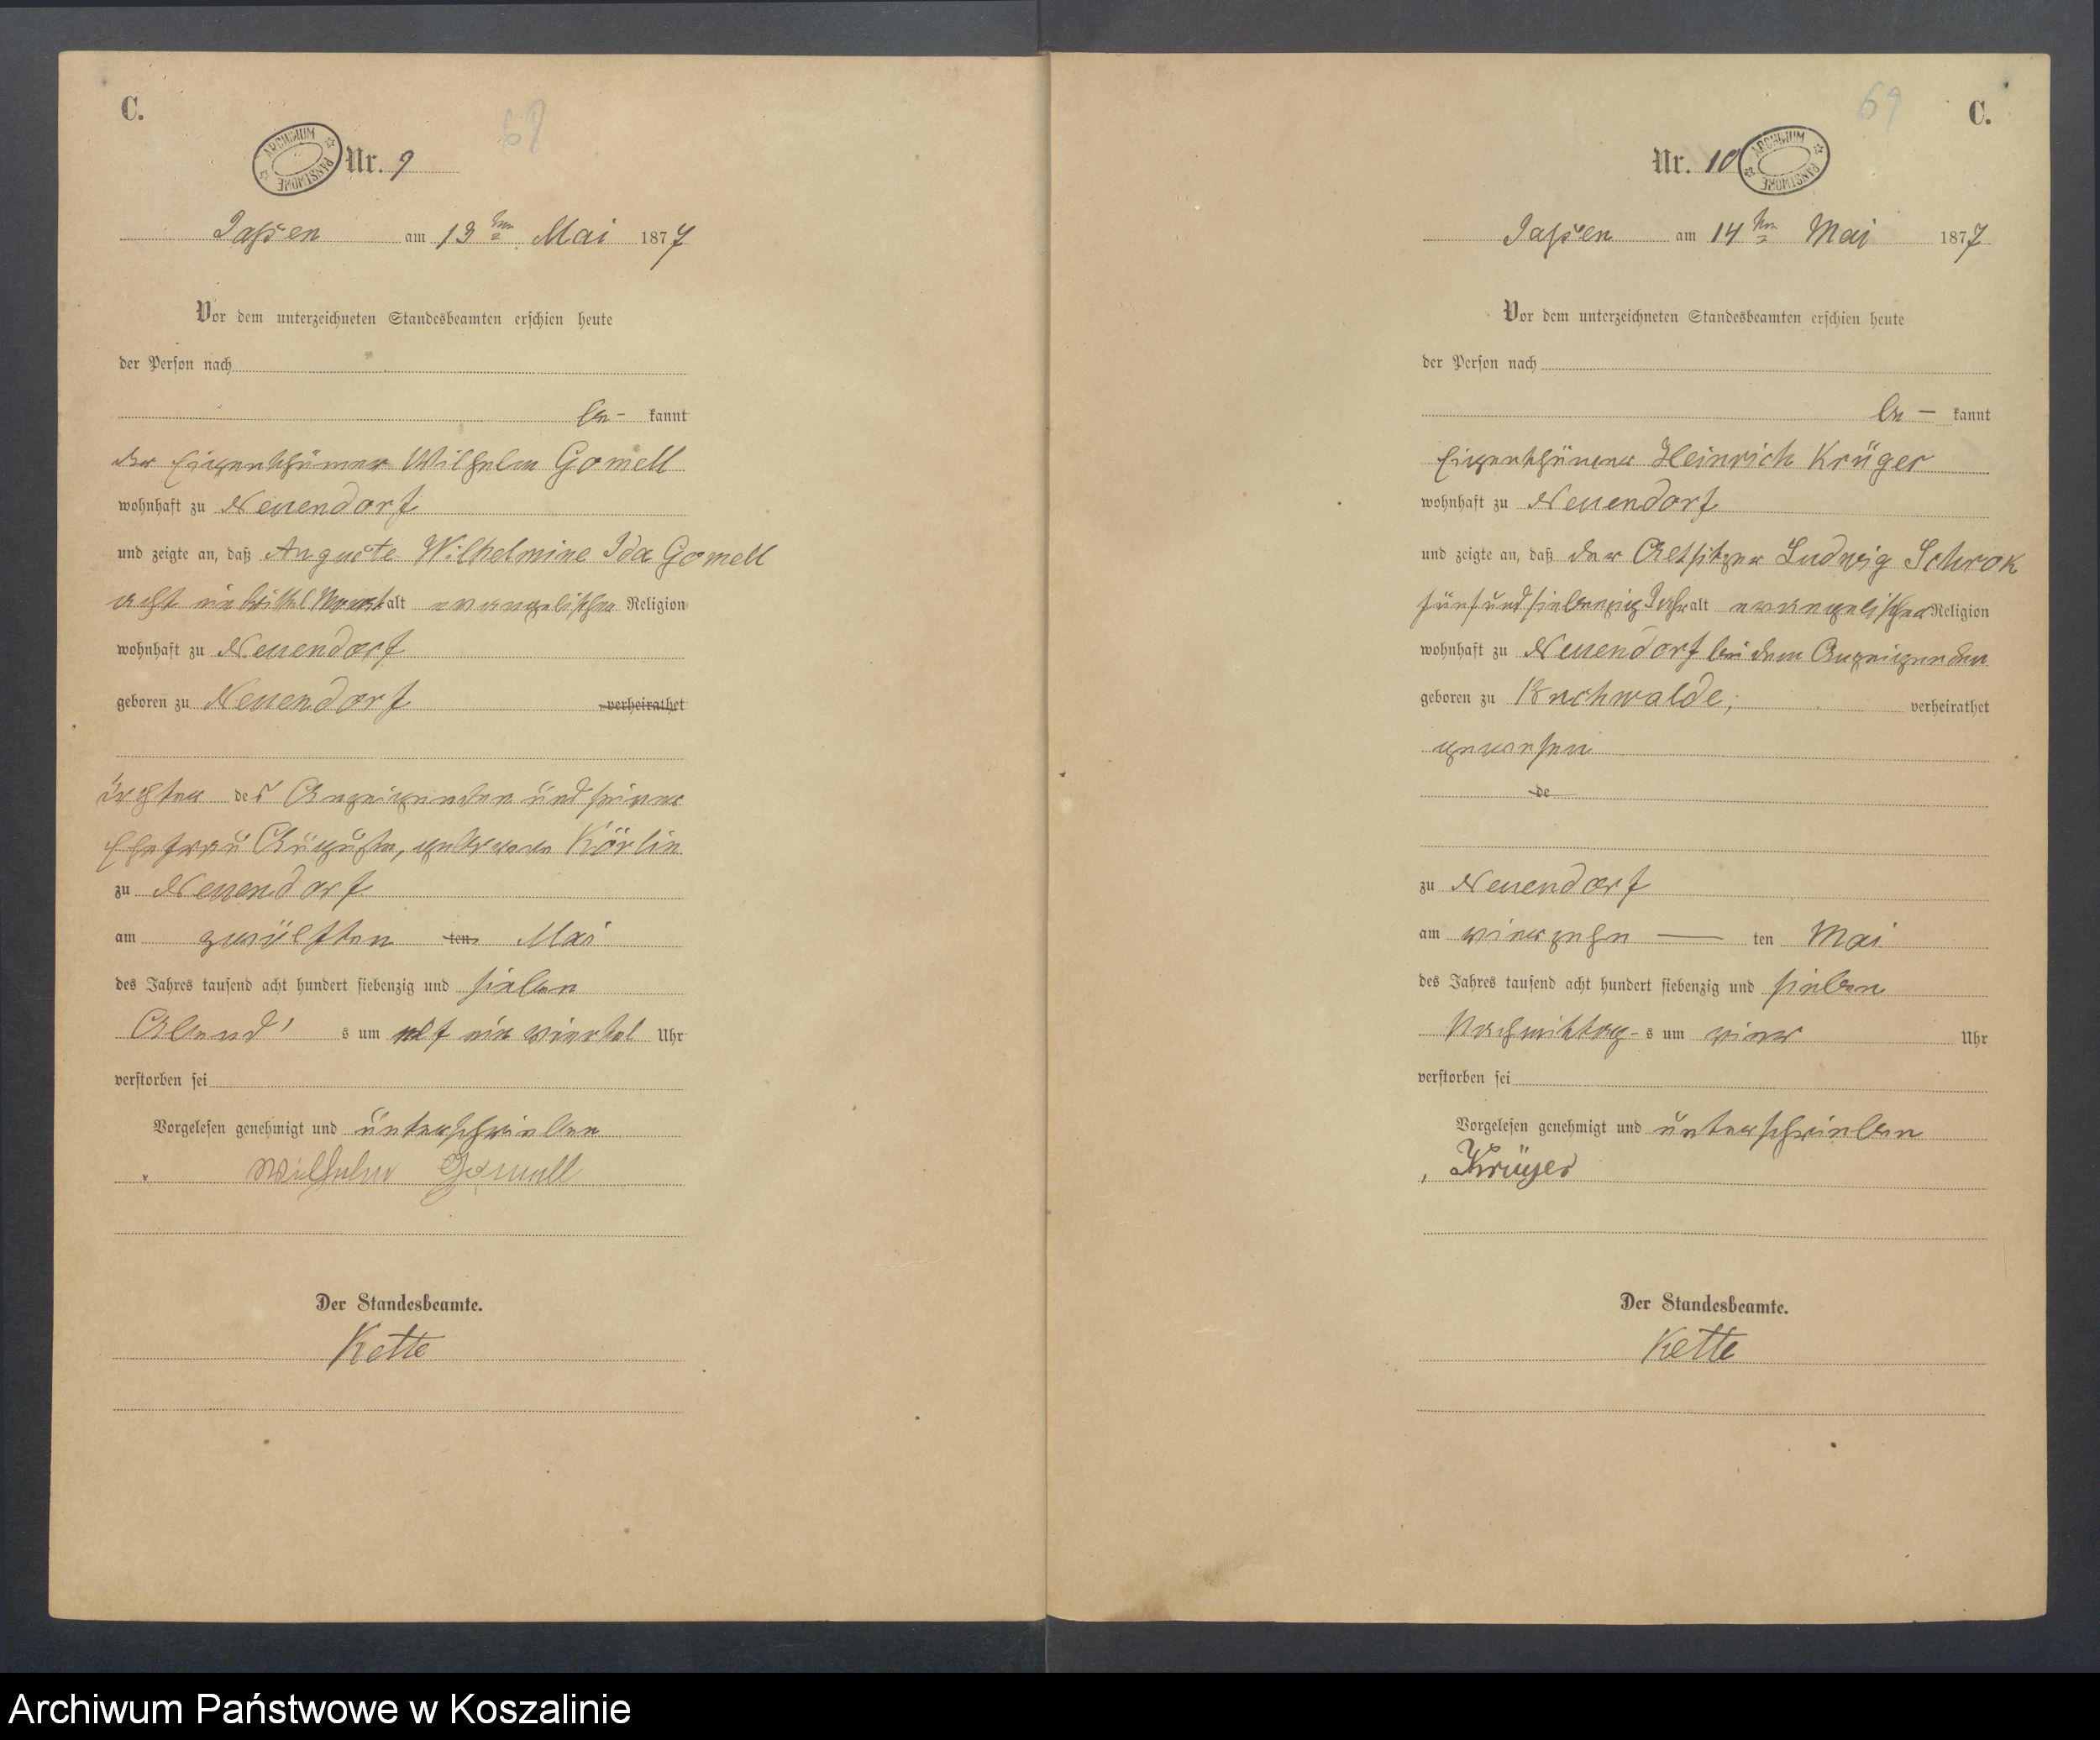 C.
68
ARCHIWUM PAŃSTWOWE
Nr. 9
Jassen am 13ten Mai 1877
Vor dem unterzeichneten Standesbeamten erschien heute
der Person nach
be- kannt
der Eigenthümer Wilhelm Gomell
wohnhaft zu Neuendorf
und zeigte an, daß Auguste Wilhelmine Ida Gomell
acht ein Monat alt evangelischer Religion
wohnhaft zu Neuendorf
geboren zu Neuendorf verheirathet
Tochter des Anzeigenden und seiner
Ehefrau Auguste, geborene Körlin
zu Neuendorf
am zwölften ten Mai
des Jahres tausend acht hundert siebenzig und sieben
Abend s um elf ein viertel Uhr
verstorben sei
Vorgelesen genehmigt und unterschrieben
Wilhelm Gomell
Der Standesbeamte.
Kette
69
C.
Nr. 10
ARCHIWUM PAŃSTWOWE
Jassen am 14ten Mai 1877
Vor dem unterzeichneten Standesbeamten erschien heute
der Person nach
be- kannt
Eigenthümer Heinrich Krüger
wohnhaft zu Neuendorf
und zeigte an, daß der Altsitzer Ludwig Schrok
fünfundsiebenzig Jahr alt evangelischer Religion
wohnhaft zu Neuendorf bei dem Anzeigenden
geboren zu Buchwalde, verheirathet
gewesen
de
zu Neuendorf
am vierzehn ten Mai
des Jahres tausend acht hundert siebenzig und sieben
Nachmittag-s um vier Uhr
verstorben sei
Vorgelesen genehmigt und unterschrieben
Krüger
Der Standesbeamte.
Kette
Archiwum Państwowe w Koszalinie